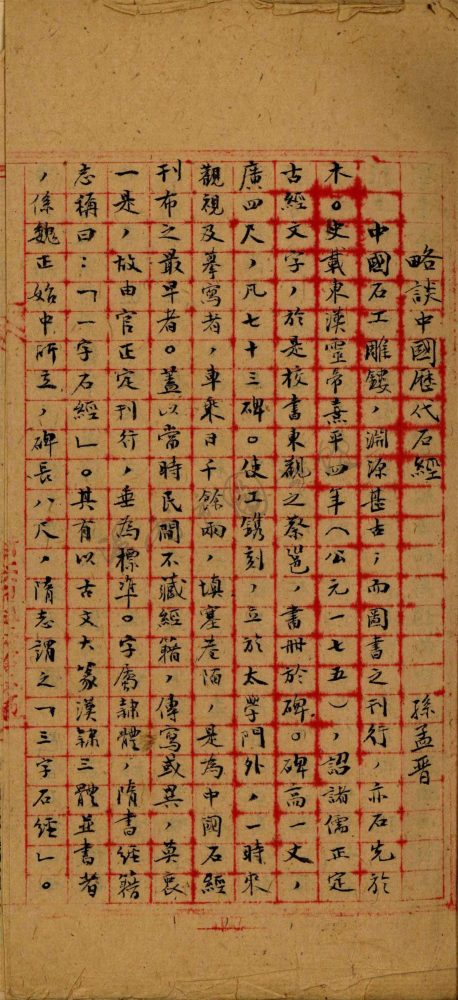 略談中國歷代石經 孫孟晉
中國石工雕鏤，淵源甚古；而圖書之刊行，亦石先於
木。史載東漢靈帝熹平四年（公元一七五），詔諸儒正定
古經文字，於是校書東觀之蔡邕，書冊於碑。碑高一丈，
廣四尺，凡七十三碑。使工鐫刻，立於太學門外，一時來
觀視及摹寫者，車乘日千餘兩，填塞巷陌，是為中國石經
刊布之最早者。蓋以當時民間不藏經籍，傳寫或異，莫衷
一是，故由官正定刊行，垂為標準。字屬隸體，隋書經籍
志稱曰：「一字石經」。其有以古文大篆漢隸三體並書者
，係魏正始中所立，碑長八尺，隋志謂之「三字石經」。